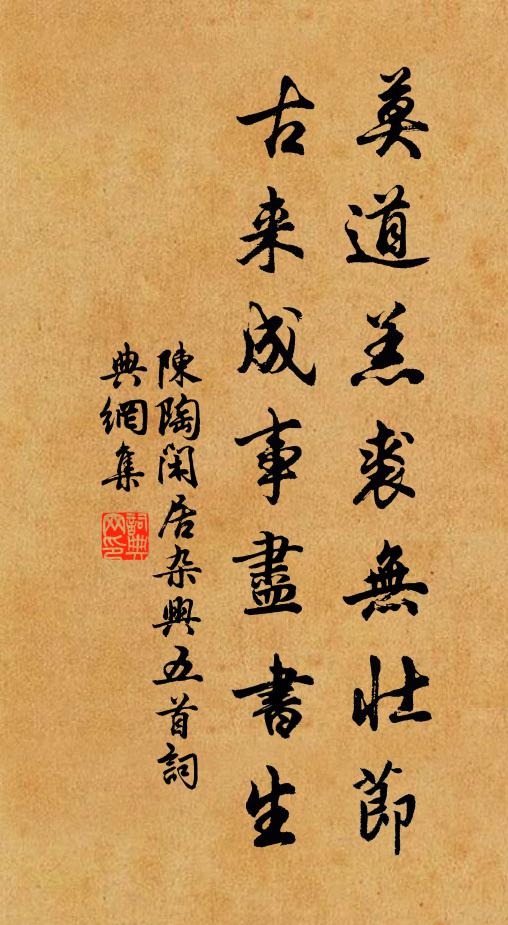 莫道羔裘無壮節
古来成事盡書生
陳陶閑居杂興五首詞
典網集
詞典网印